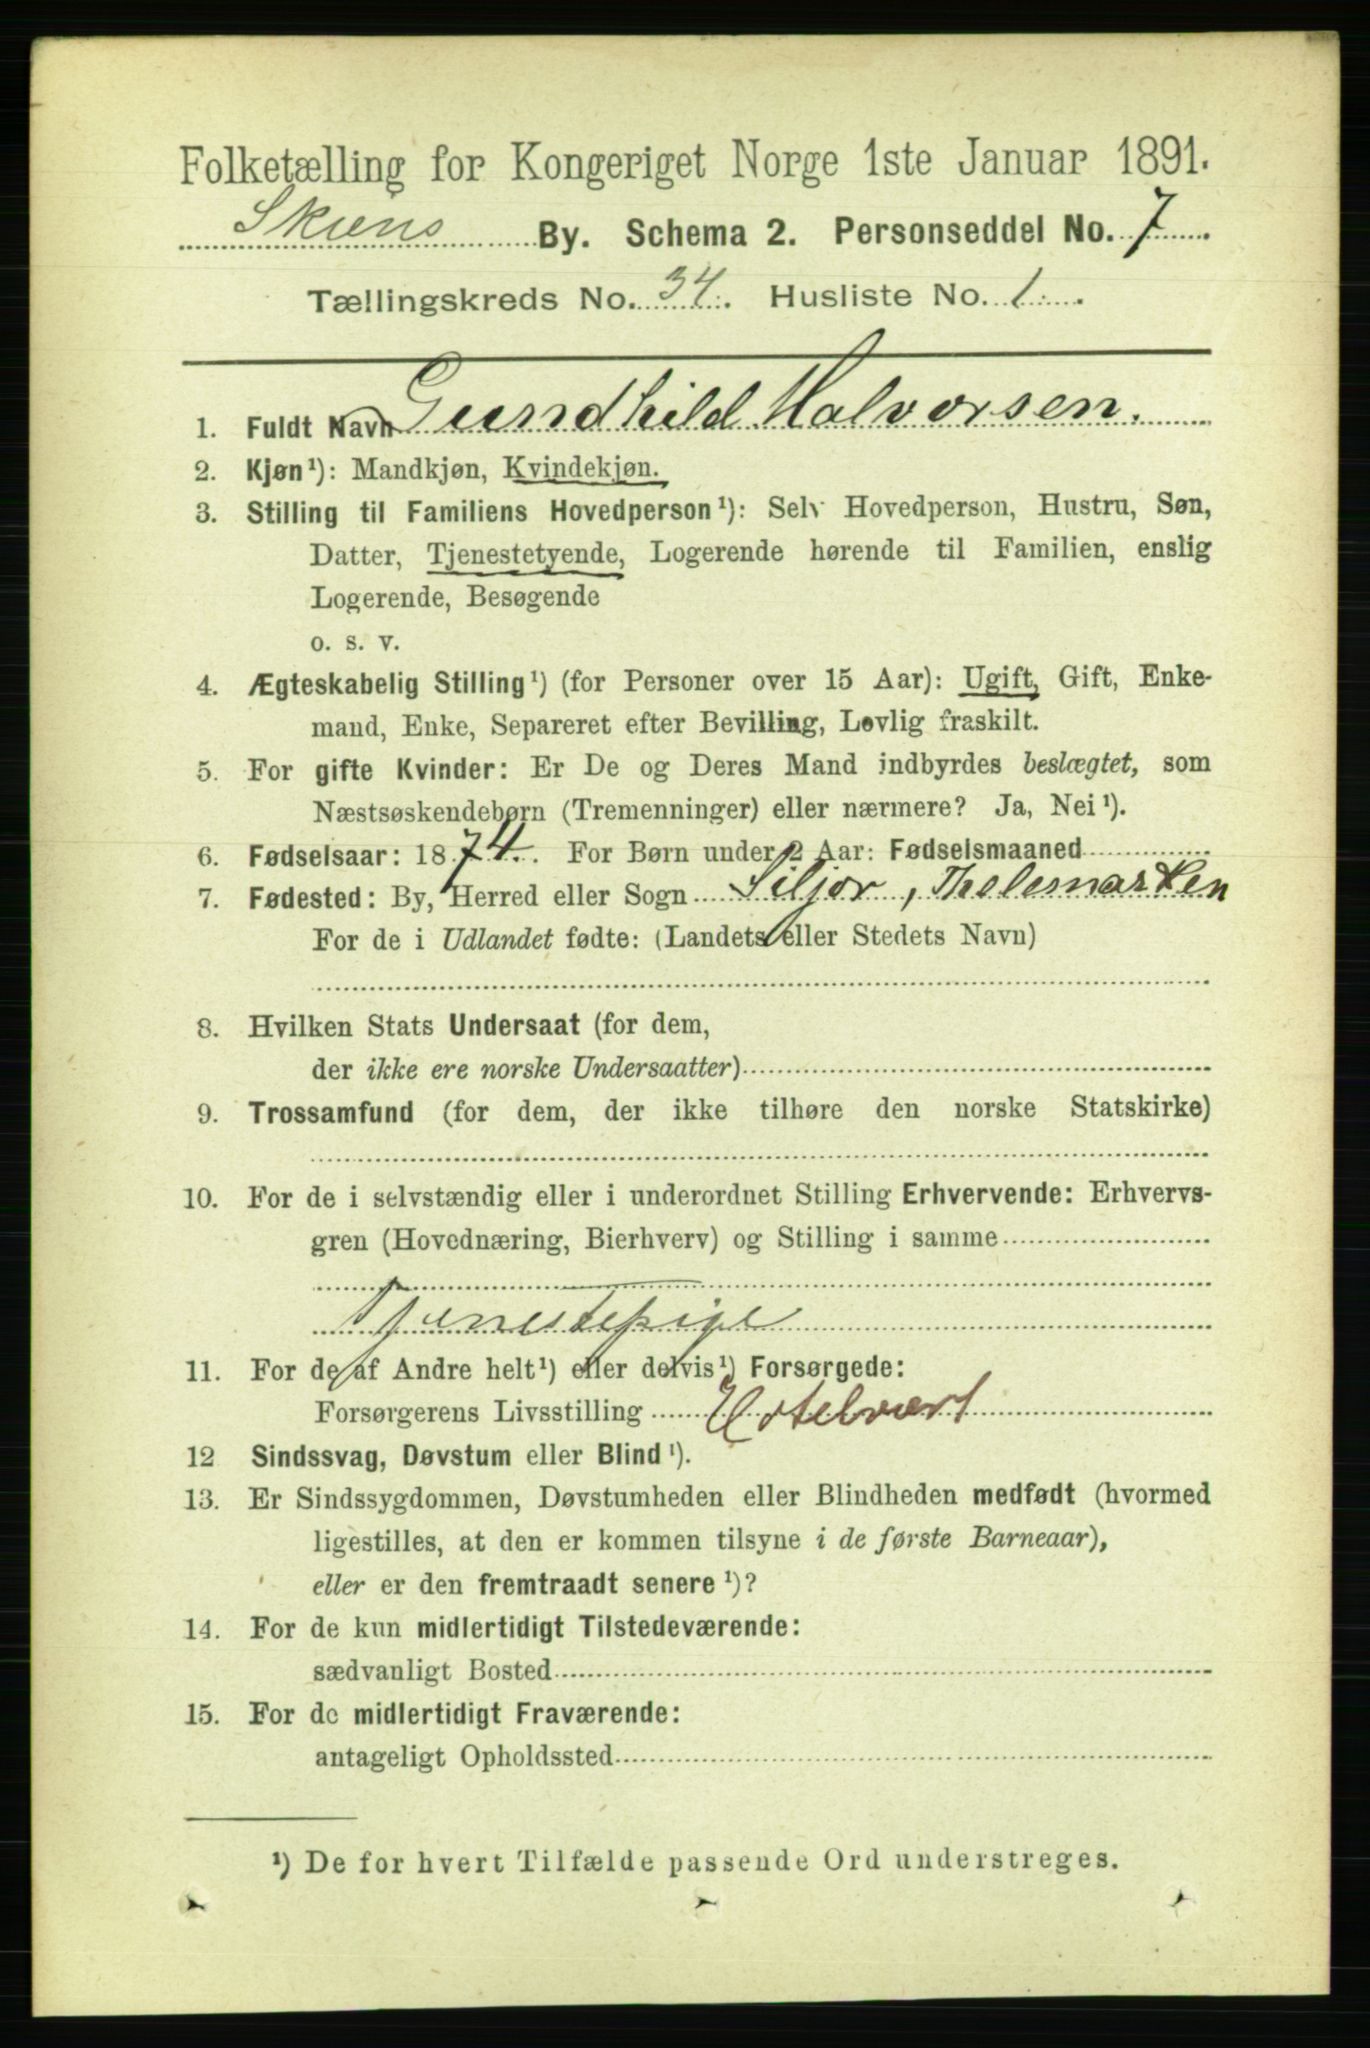 Folketælling for Kongeriget Norge 1ste Januar 1891.
Skiens By. Schema 2. Personseddel No. 7
Tællingskreds No. 34. Husliste No. 1.
1. Fuldt Navn Gundhild Halvorsen.
2. Kjøn¹): Mandkjøn, Kvindekjøn.
3. Stilling til Familiens Hovedperson¹): Selv Hovedperson, Hustru, Søn,
Datter, Tjenestetyende, Logerende hørende til Familien, enslig
Logerende, Besøgende
o. s. v.
4. Ægteskabelig Stilling¹) (for Personer over 15 Aar): Ugift, Gift, Enke-
mand, Enke, Separeret efter Bevilling, Lovlig fraskilt.
5. For gifte Kvinder: Er De og Deres Mand indbyrdes beslægtet, som
Næstsøskendebørn (Tremenninger) eller nærmere? Ja, Nei¹).
6. Fødselsaar: 1874. For Børn under 2 Aar: Fødselsmaaned
7. Fødested: By, Herred eller Sogn Siljor, Thelemarken
For de i Udlandet fødte: (Landets eller Stedets Navn)
8. Hvilken Stats Undersaat (for dem,
der ikke ere norske Undersaatter)
9. Trossamfund (for dem, der ikke tilhøre den norske Statskirke)
10. For de i selvstændig eller i underordnet Stilling Erhvervende: Erhvervs-
gren (Hovednæring, Bierhverv) og Stilling i samme
Tjenestepige
11. For de af Andre helt¹) eller delvis¹) Forsørgede:
Forsørgerens Livsstilling Hotelvært
12 Sindssvag, Døvstum eller Blind¹).
13. Er Sindssygdommen, Døvstumheden eller Blindheden medfødt (hvormed
ligestilles, at den er kommen tilsyne i de første Barneaar),
eller er den fremtraadt senere¹)?
14. For de kun midlertidigt Tilstedeværende:
sædvanligt Bosted
15. For de midlertidigt Fraværende:
antageligt Opholdssted
¹) De for hvert Tilfælde passende Ord understreges.